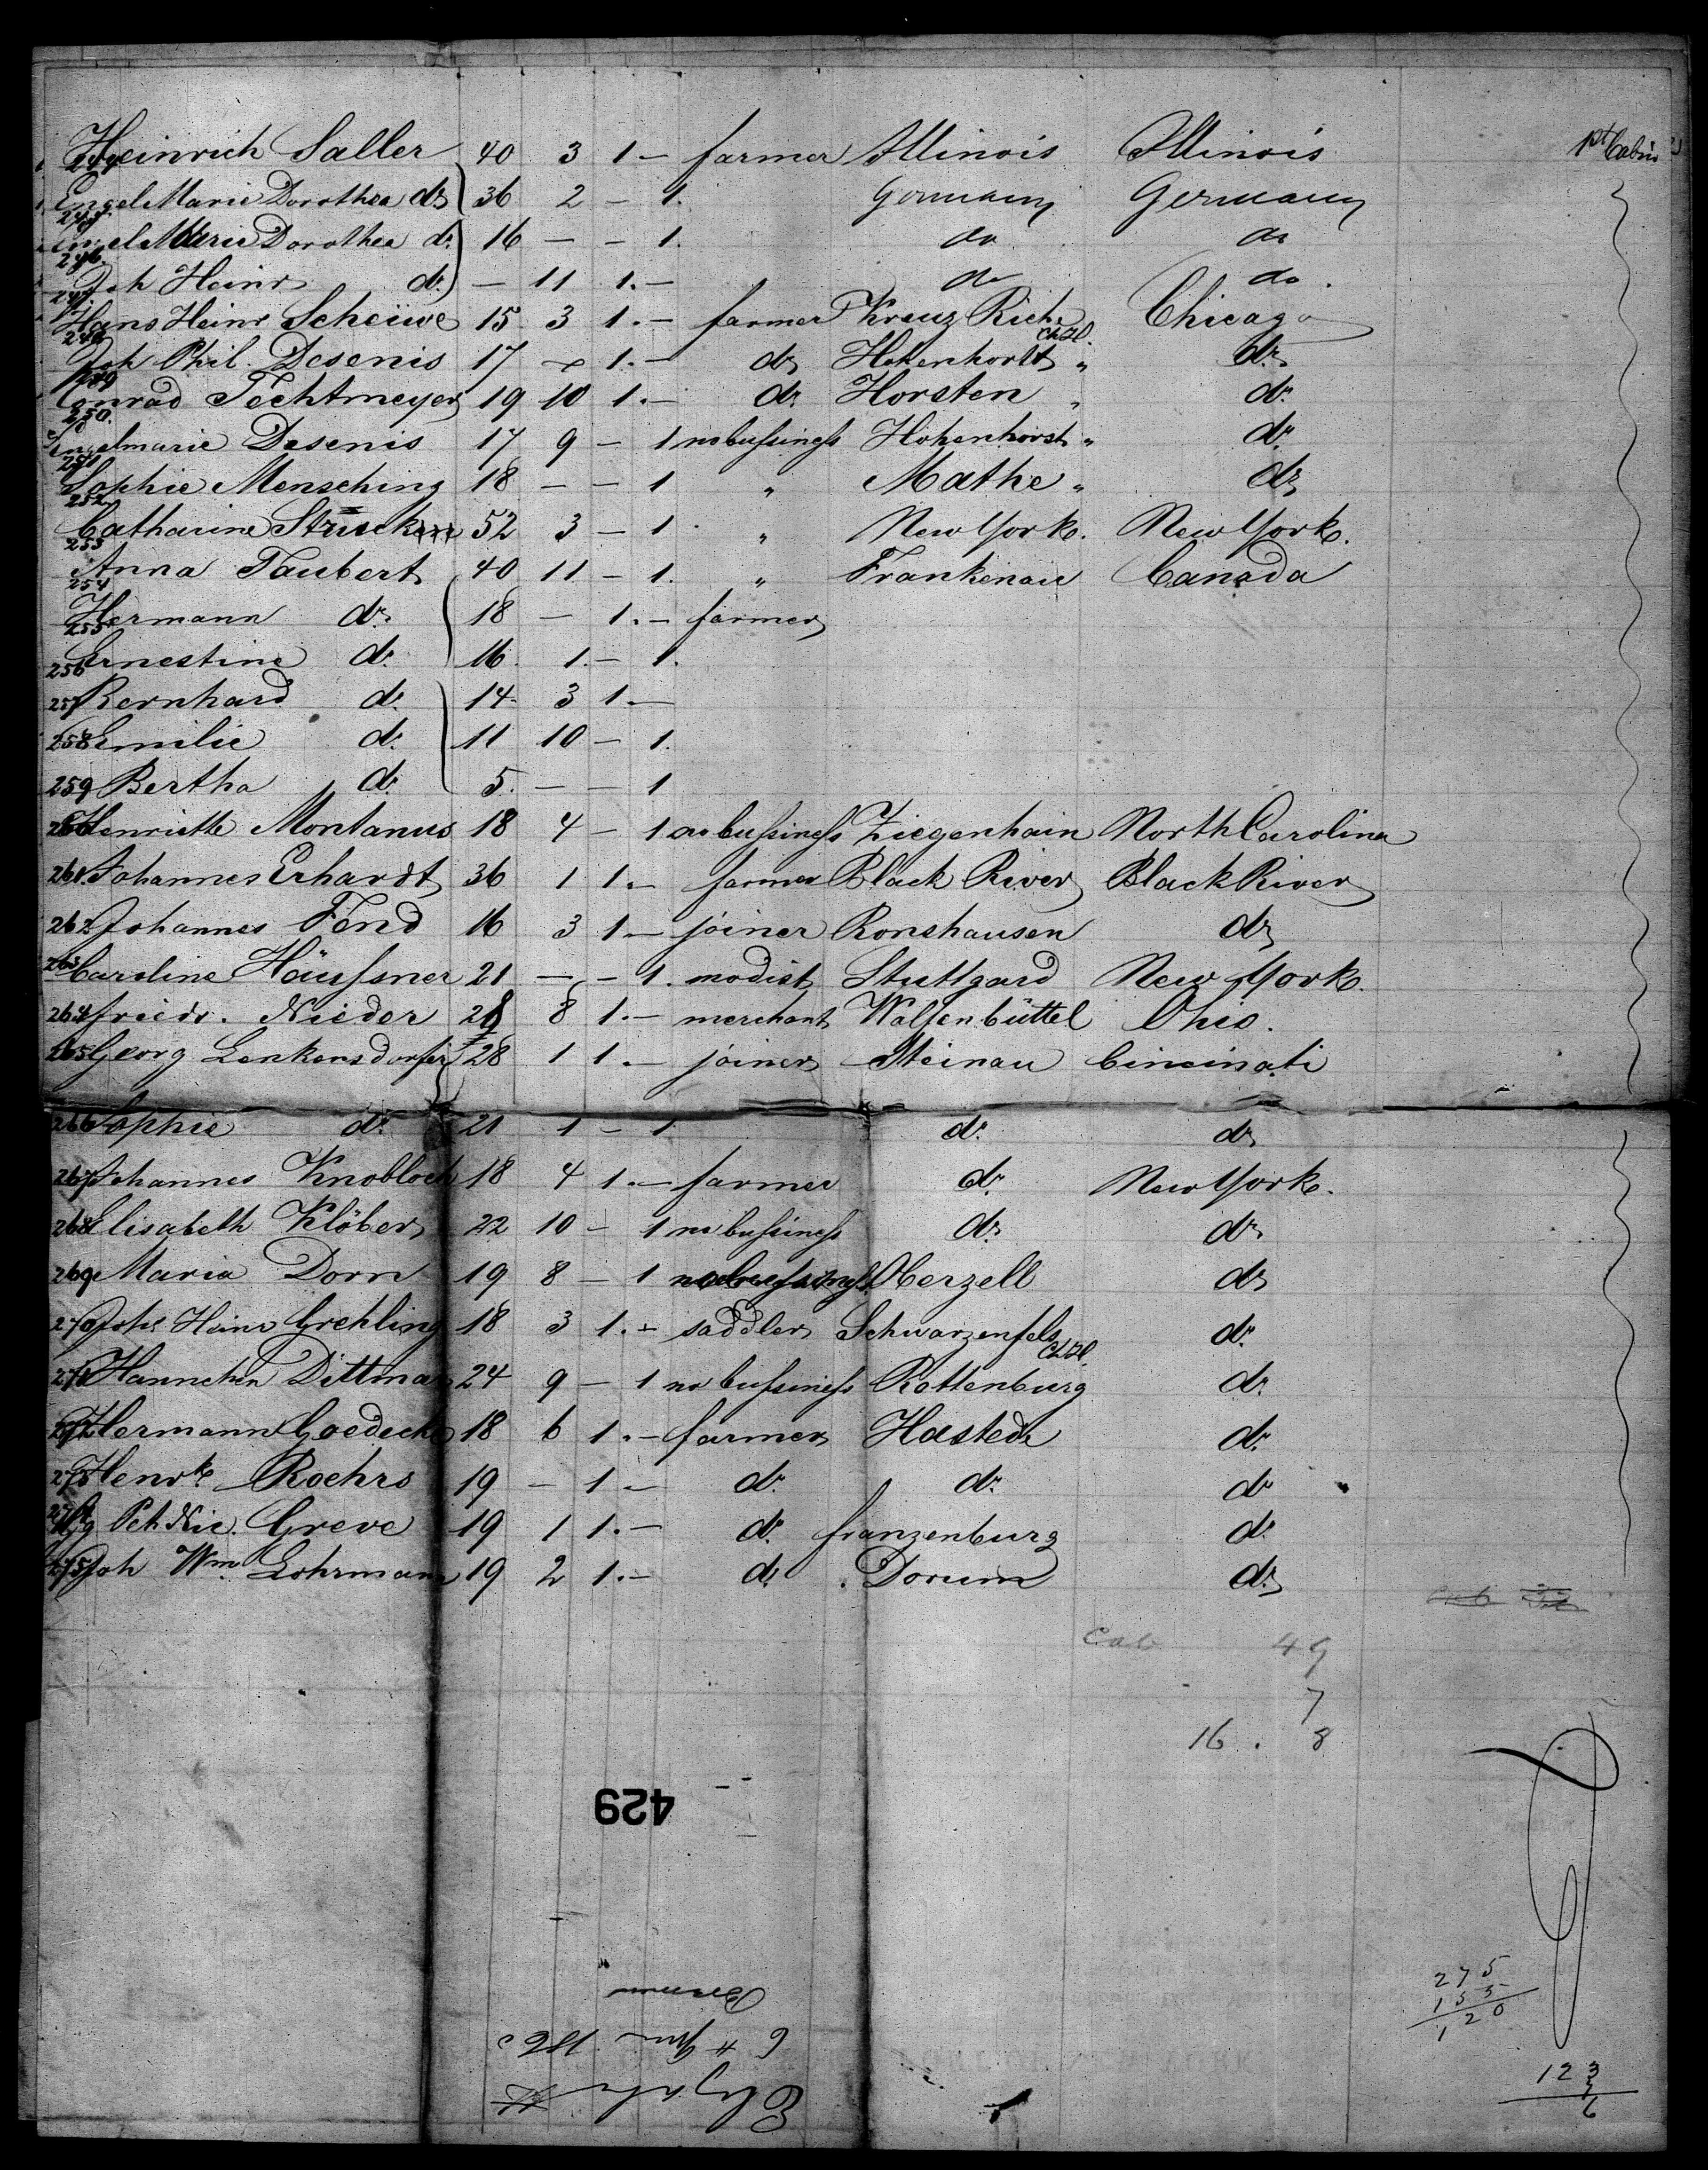 1st Cabin
244 Heinrich Saller 40 3 1 – farmer Illinois Illinois
245 Engel Marie Dorothea do 36 2 – 1. Germany Germany
246. Engel Marie Dorothea do 16 – – 1. do do
247. Joh Heinr do – 11 1. – do do.
248 Hans Heinr Scheüve 15 3 1. – farmer Kreuz Riehe Chicago
249 Joh Phil. Desenis 17 – 1. – do Hohenhorst Ch.H. " do
250. Conrad Techtmeyer 19 10 1. – do Horsten " do
251 Engelmarie Desenis 17 9 – 1 no bussiness Hohenhorst " do
252 Sophie Mensching 18 – – 1 " Mathe " do
253 Catharine Strucken 52 3 – 1 " New York. New York.
254 Anna Taubert 40 11 – 1. " Frankenau Canada
255 Hermann do 18 – 1. – farmer
256 Ernestine do 16. 1. – 1.
257 Bernhard do 14 3 1. –
258 Emilie do 11 10 – 1.
259 Bertha do 5. – – 1
260 Henriette Montanus 18 4 – 1 no bussiness Ziegenhain North Carolina
261. Johannes Erhardt 36 1 1. – farmer Black River Black River
262 Johannes Fend 16 3 1 – joiner Ronshausen do
263 Caroline Häussner 21 – – 1. modist Stuttgard New York.
264 Friedr. Nieder 28 8 1. – merchant Wolfenbüttel Ohio.
265 Georg Lenkersdorfer 28 1 1. – joiner Steinau Cincinati
266 Sophie do 21 1 – 1 do do
267 Johannes Knobloch 18 4 1. – farmer do New York.
268 Elisabeth Klöber 22 10 – 1 no bussiness do do
269 Maria Dorn 19 8 – 1 no bussiness Oberzell do
270 Johs Heinr Grehling 18 3 1. – saddler Schwarzenfels do
271 Hannchen Dittmar 24 9 – 1 no bussiness Rottenburg Ch.H. do
272 Hermann Goedecke 18 6 1. – farmer Hastedt do
273 Henrk. Roehrs 19 – 1 – do do do
274 Hg Pet Nic. Greve 19 1 1. – do Franzenburg do
275 Joh Wm. Lohrmann 19 2 1. – do Dorum do
Cab 49
7
16. 8
429
275
155
120
123
3
6
Bremen